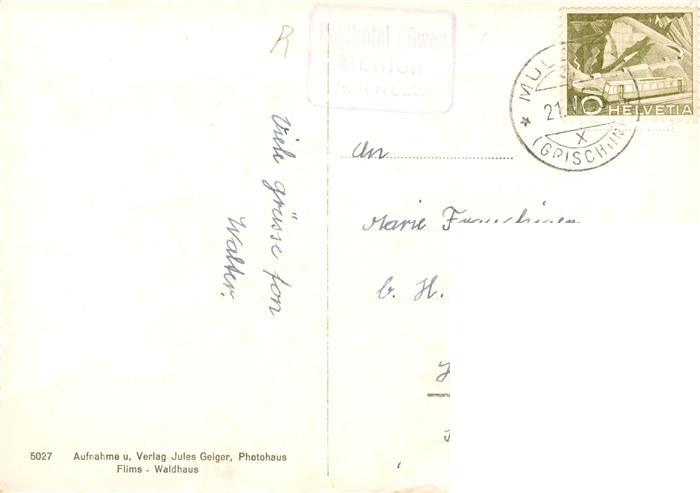 R
Posthotel Löwen
Mühlen
MUL
21.
X
(GRISCHUN
10 HELVETIA
Viele grüsse fon
Walter.
An
Marie
b. H.
5027 Aufnahme u. Verlag Jules Geiger, Photohaus
Flims - Waldhaus